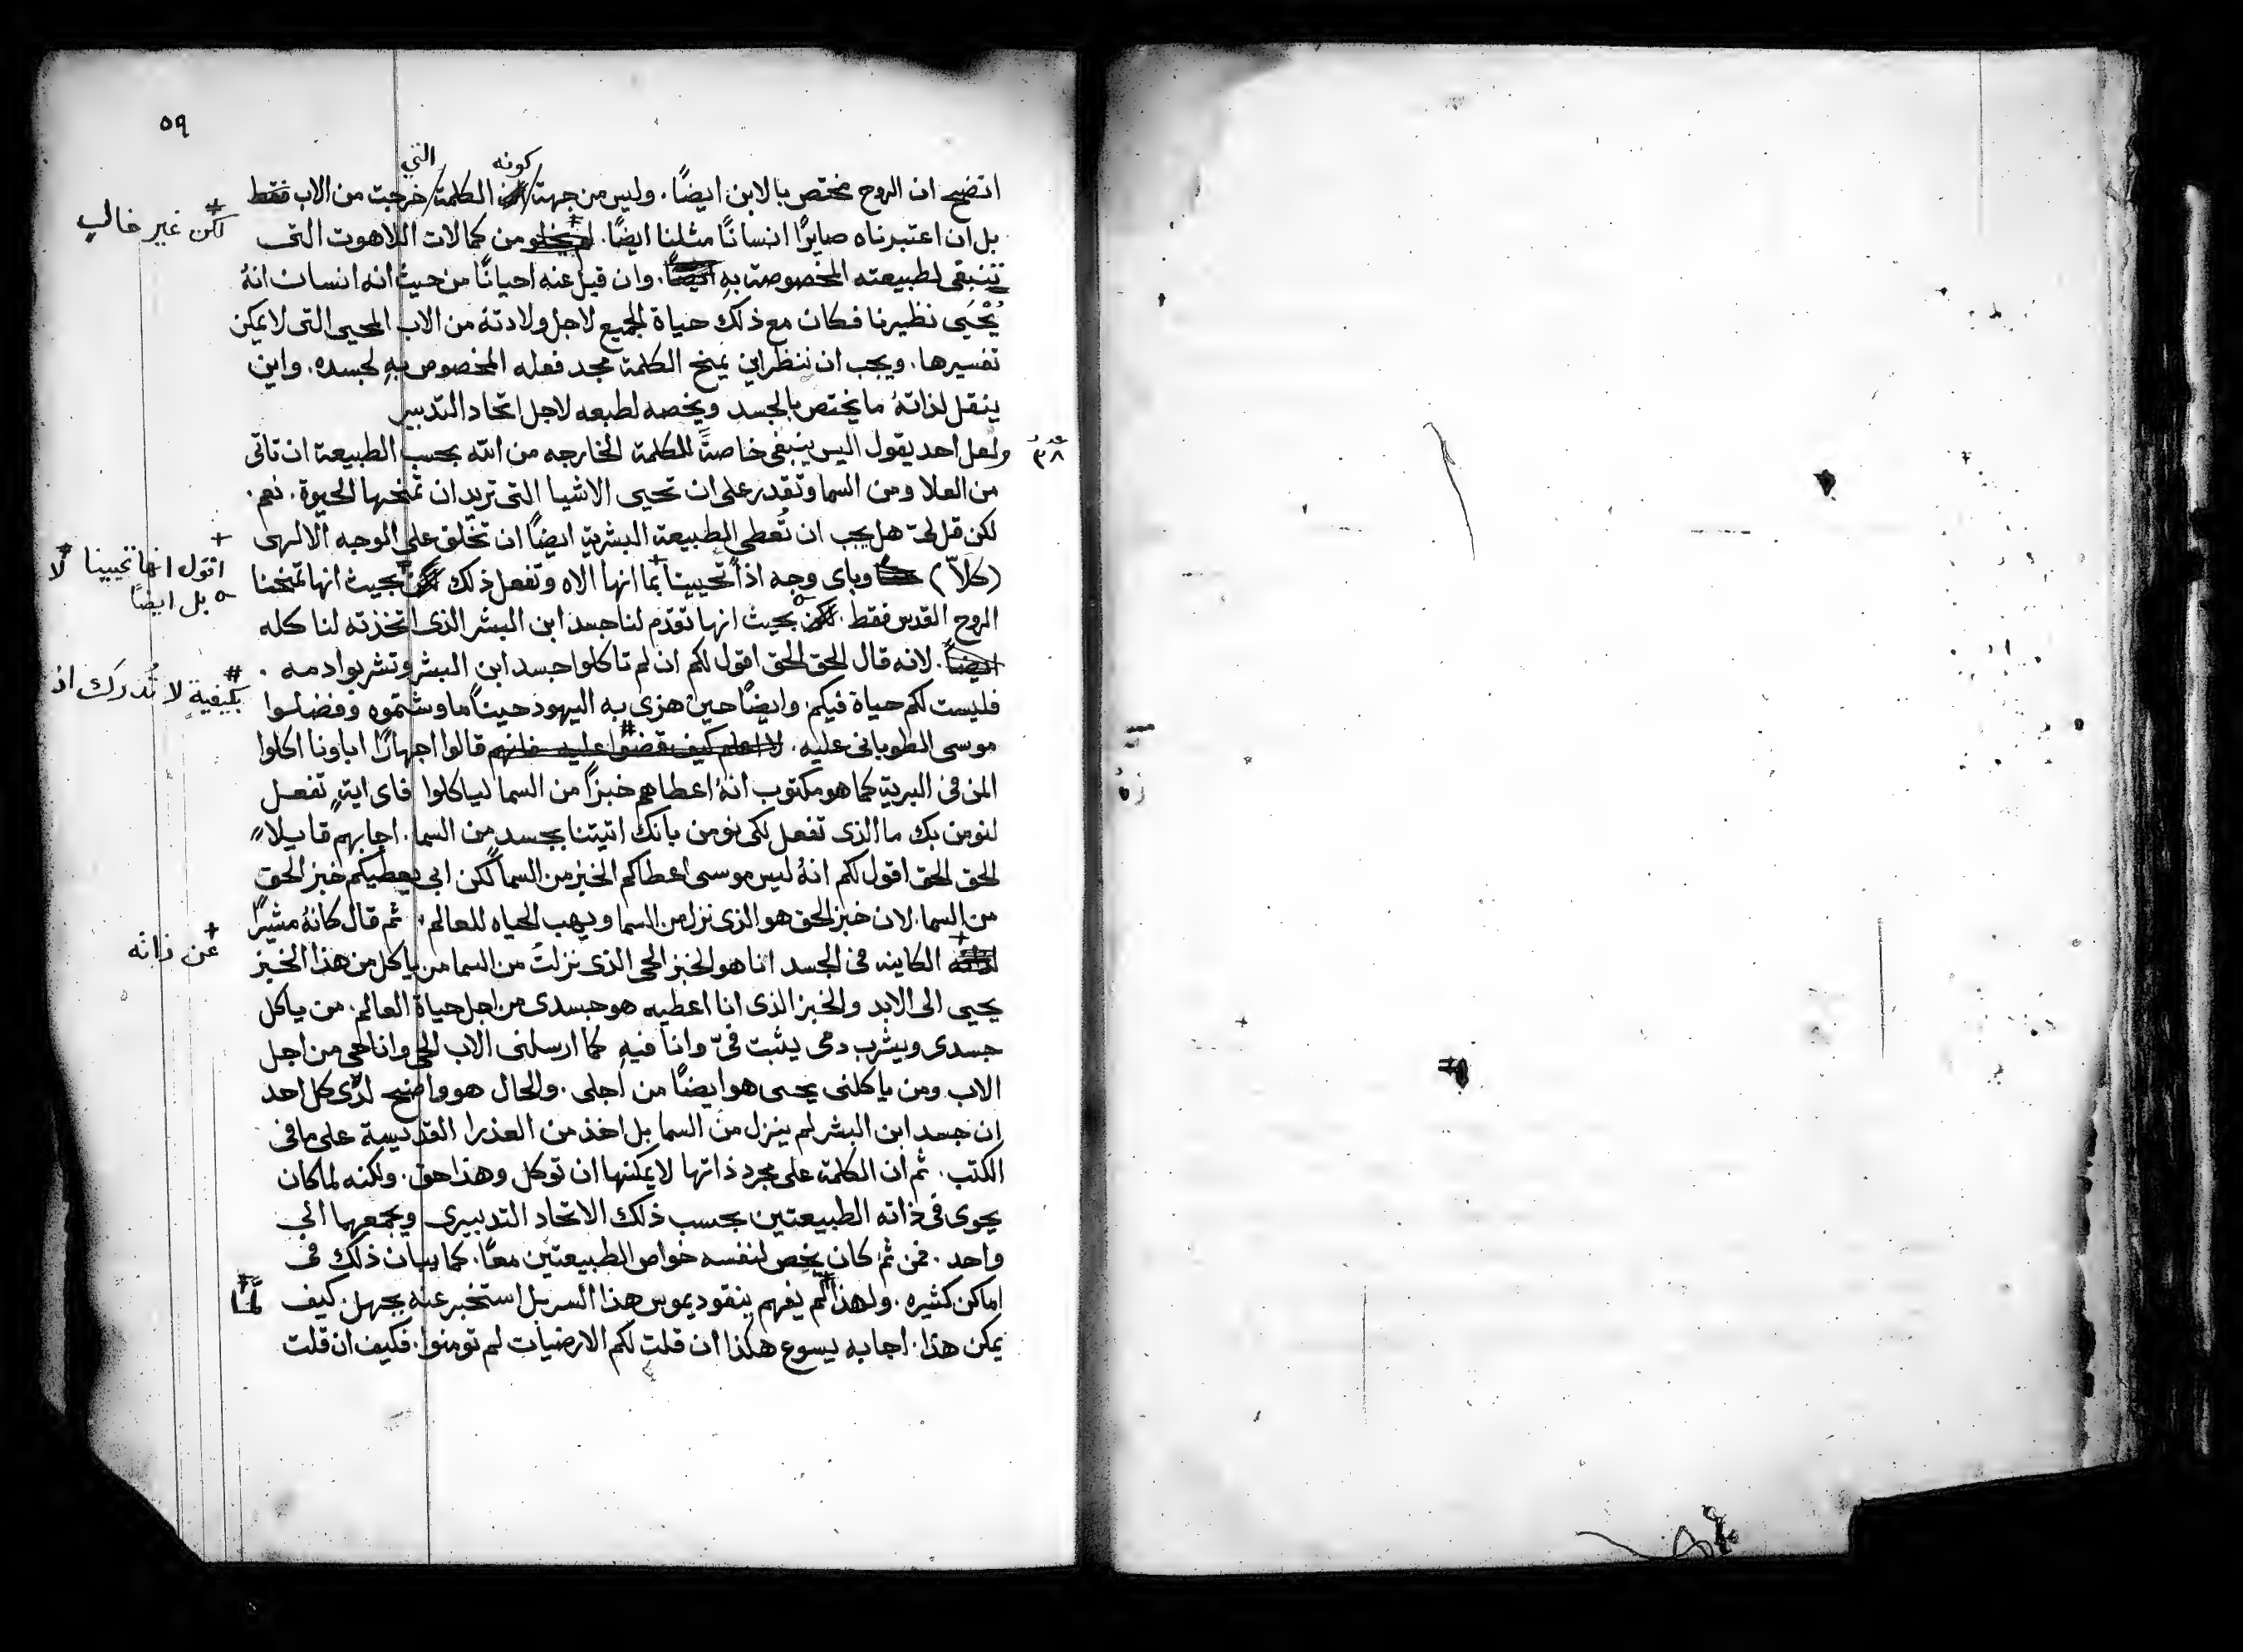 ٥٩
كونه التي
اتضح ان الروح مختص بالابن ايضًا. وليس من جهة الكلمة خرجت من الاب فقط
لكن غير خالب
بل ان اعتبرناه صايرًا انسانًا مثلنا ايضًا. لم يخلو من كمالات اللاهوت التى
تنبغى لطبيعته المخصوصة به ايضًا. وان قيل عنه احيانًا من حيث انه انسان انهُ
يُحْيَى نظيرنا فكان مع ذلك حياة لجميع لاجل ولادتهُ من الاب المحيى التى لا يمكن
تفسيرها. ويجب ان ننظر اين يمنح الكلمة مجد فعله المخصوص بهِ لجسده. واين
ينقل لذاتهُ ما يختص بالجسد ويخصه لطبعه لاجل اتحاد التدبير
عدد ٣٨
ولعل احد يقول اليس ينبغى خاصةً للكلمة الخارجه من الله بحسب الطبيعة ان تاتى
من العلا ومن السما وتقدر على ان تحيى الاشيا التى تريد ان تمنحها الحيوة. نعم.
لكن قل لىّ هل يجب ان تُعطى الطبيعة البشرية ايضًا ان تخلق على الوجه الالهى
اقول انها تحيينا لا
(كلاّ) وباى وجه اذاً تحيينا بما انها الاه وتفعل ذلك بحيث انها تمنحنا
بل ايضًا
الروح القدس فقط. لكن بحيث انها تقدم لنا جسد ابن البشر الذى اتخذته لنا كله
ايضًا. لانه قال الحق الحق اقول لكم ان لم تاكلوا جسد ابن البشر وتشربوا دمه.
بكيفيةٍ لا تُدرَك اذ
فليست لكم حياة فيكم. وايضًا حين هزى به اليهود حينًا ما وشتموه وفضلوا
موسى الطوبانى عليه. لا اعلم كيف يقضوا عليه فانهم قالوا اجهارًا اباونا اكلوا
المن فى البرية كما هو مكتوب انهُ اعطاهم خبزًا من السما لياكلوا فاى ايةٍ تفعل
لنومن بك ما الذى تفعل لكى نومن بانك اتيتنا بجسد من السما. اجابهم قايلاً
الحق الحق اقول لكم انهُ ليس موسى اعطاكم الخبز من السما لكن ابى يعطيكم خبز الحق
من السما. لان خبز الحق هو الذى نزل من السما ويهب الحياه للعالم. ثم قال كانهُ مشيرًا
عن ذاته
لذاته الكاينه فى الجسد انا هو الخبز الحى الذى نزلتَ من السما من ياكل من هذا الخبز
يحيى الى الابد والخبز الذى انا اعطيه هو جسدى من اجل حياة العالم. من ياكل
جسدى ويشرب دمى يثبت فىّ وانا فيهِ كما ارسلنى الاب الحى وانا حى من اجل
الاب ومن ياكلنى يحيى هو ايضًا من اجلى. والحال هو واضح لدى كل احد
ان جسد ابن البشر لم ينزل من السما بل اخذ من العذرا القديسة على ما فى
الكتب. ثم ان الكلمة على مجرد ذاتها لا يمكنها ان توكل وهذا حق. ولكنه لما كان
يحوى فى ذاته الطبيعتين بحسب ذلك الاتحاد التدبيرى ويجمعهما الى
واحد. فمن ثم كان يخص لنفسه خواص الطبيعتين معًا. كما يبان ذلك فى
اماكن كثيره. ولهذا لم يفهم نيقوديموس هذا السر بل استخبر عنه بجهل. كيف
لمّا
يمكن هذا. اجابه يسوع هكذا ان قلت لكم الارضيات لم تومنوا. فكيف ان قلت